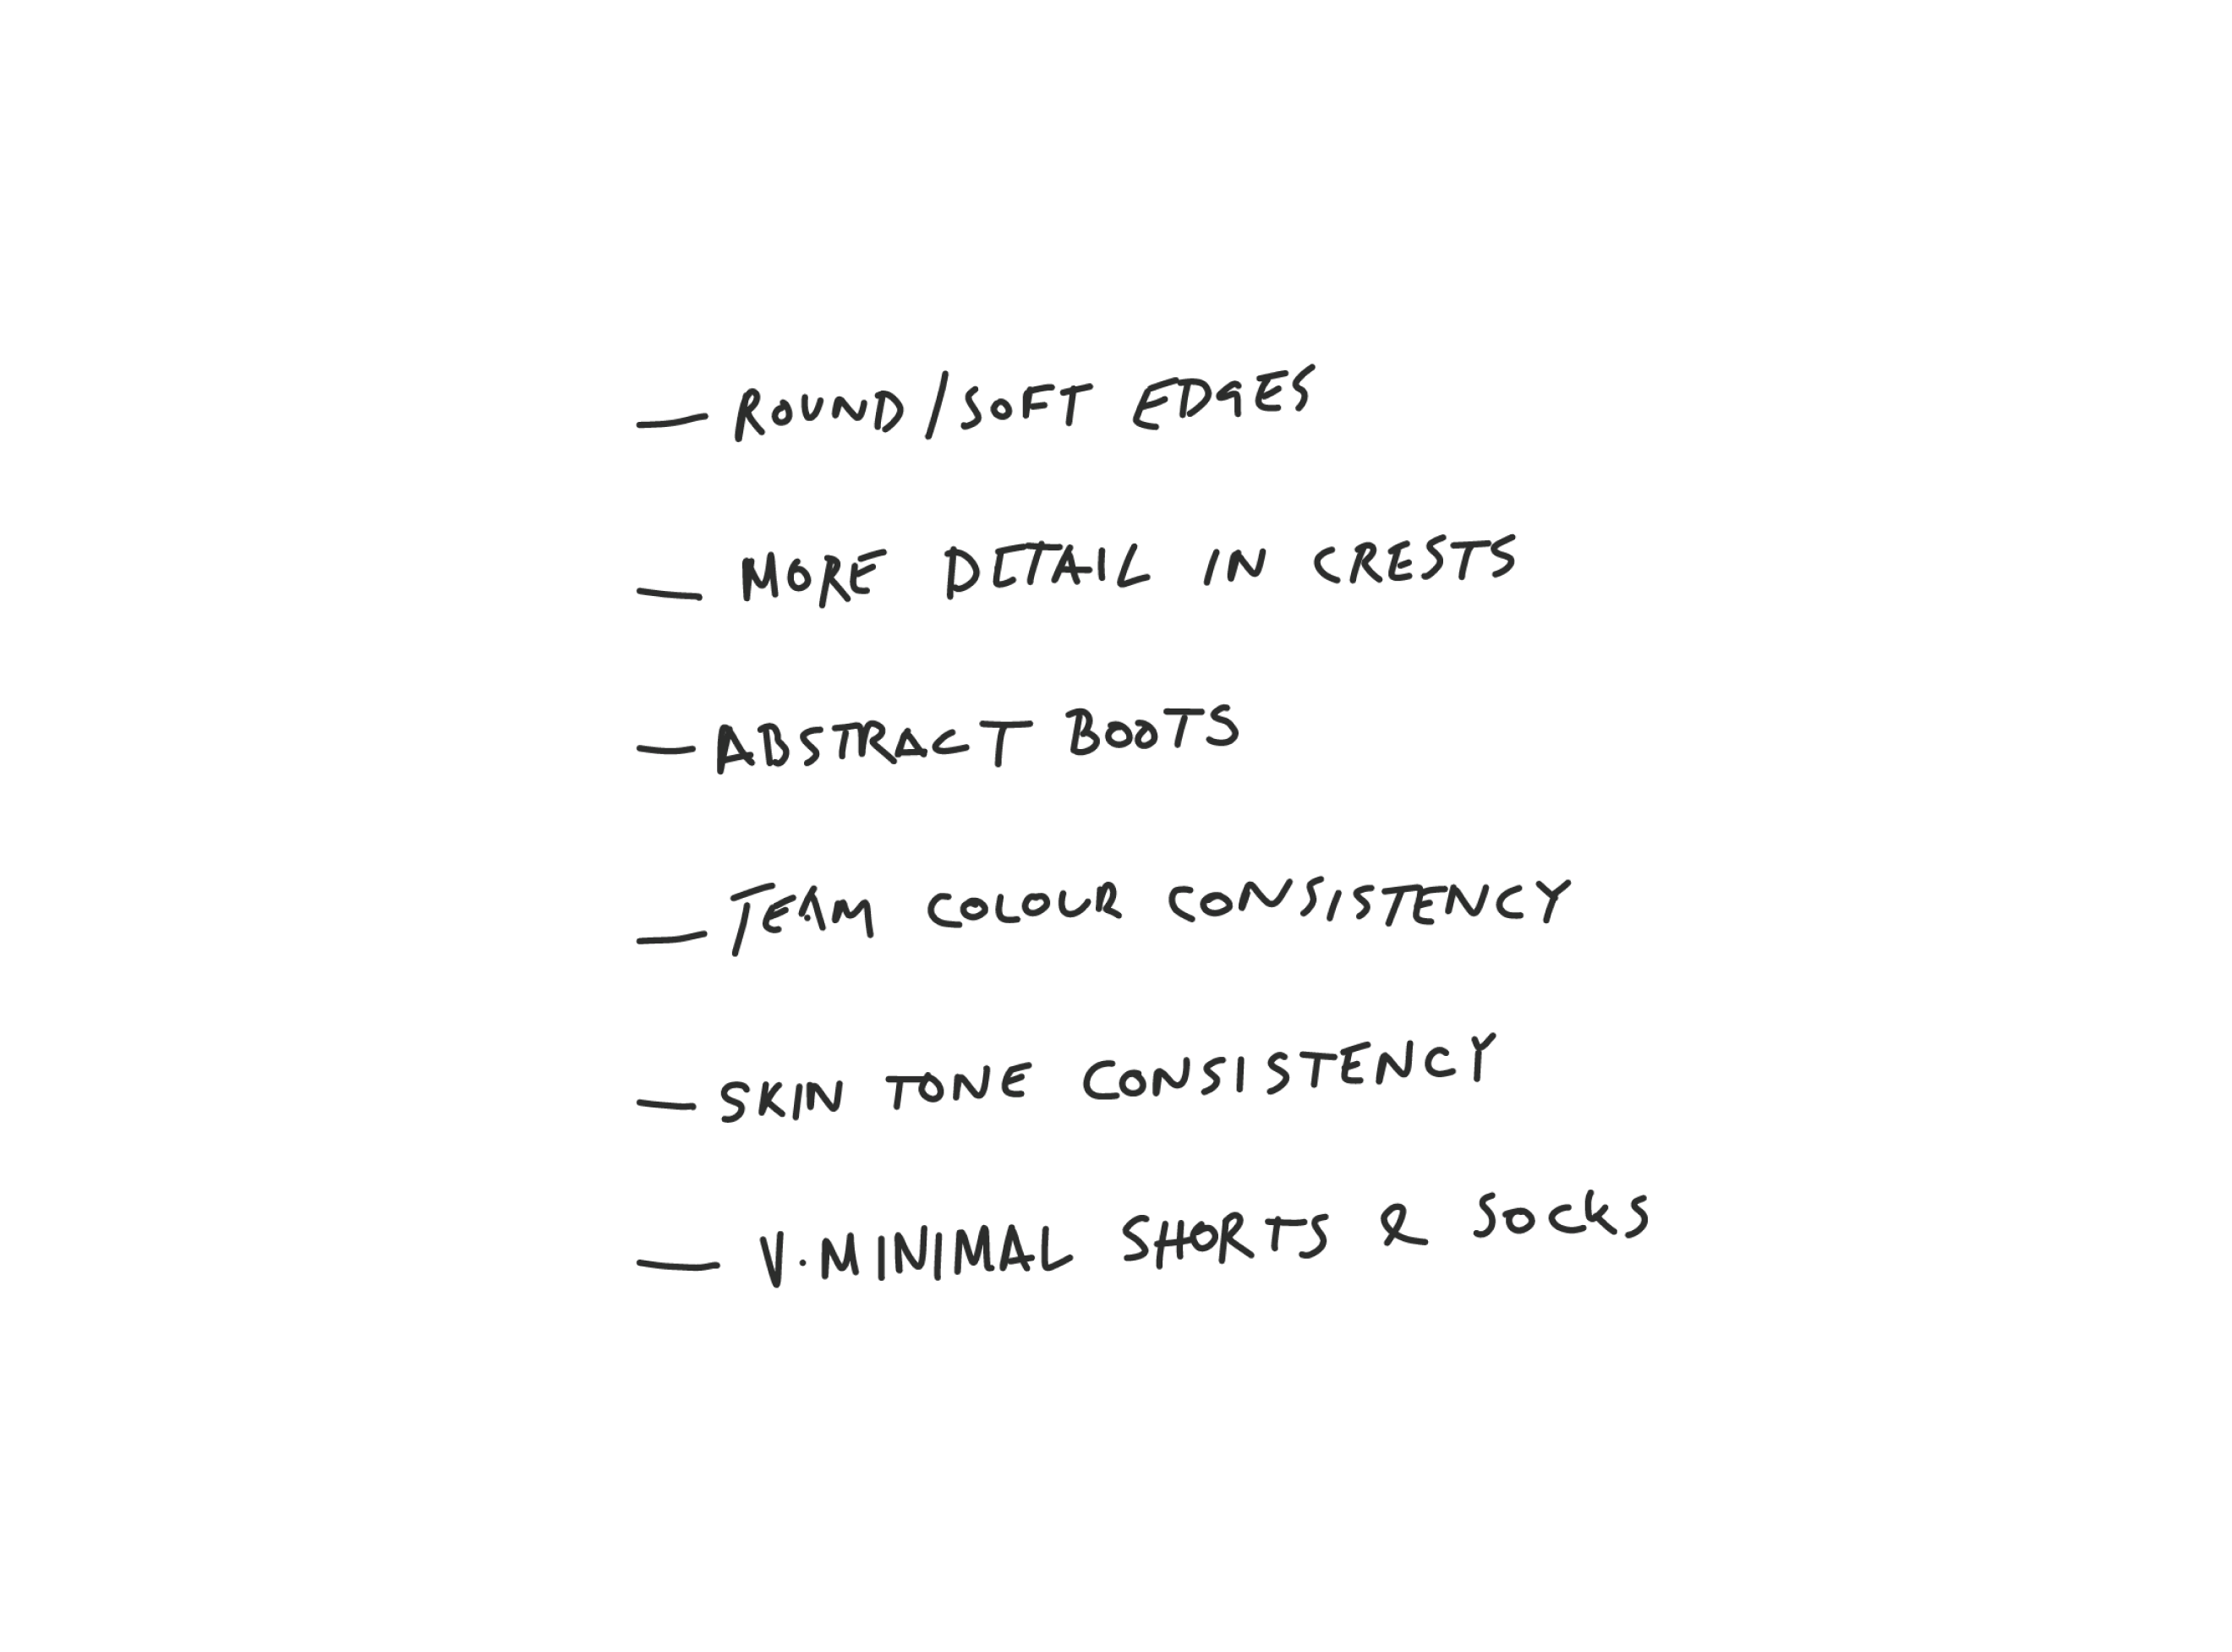 — ROUND/SOFT EDGES
— MORE DETAIL IN CRESTS
— ABSTRACT BOOTS
— TEAM COLOUR CONSISTENCY
— SKIN TONE CONSISTENCY
— V.MINIMAL SHORTS & SOCKS